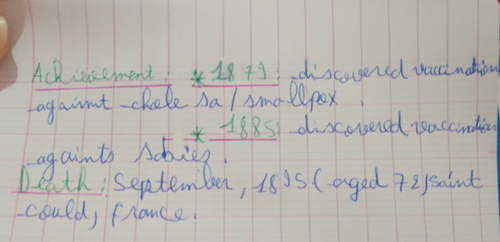 Achievement: * 1879: discovered vaccination
againmt chole sa / smallpox
* 1885: discovered vaccination
againts
Death: September, 1895 (aged 72) saint
could, france.